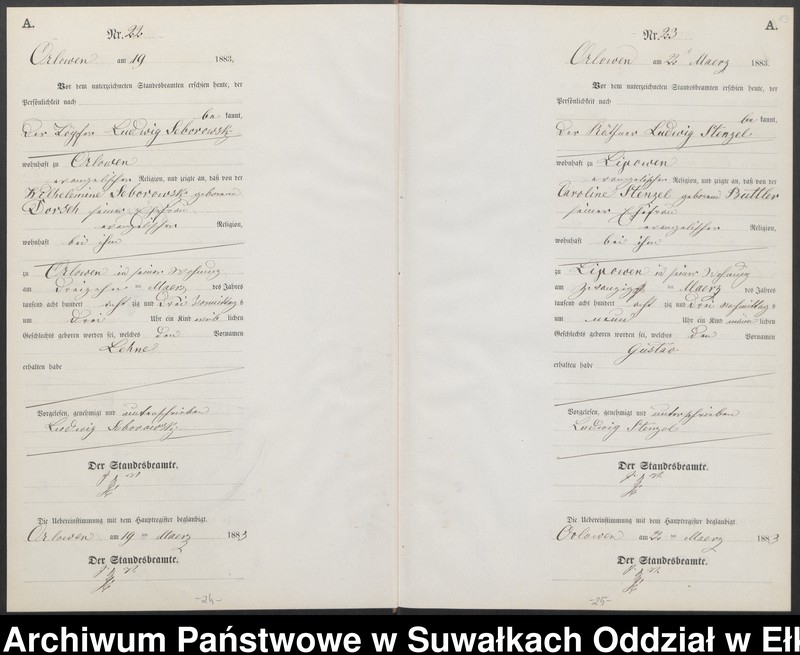 A.
Nr. 22
Orlowen am 19 1883,
Vor dem unterzeichneten Standesbeamten erschien heute, der
Persönlichkeit nach
be kannt,
Der Töpfer Ludwig Seborowski
wohnhaft zu Orlowen
evangelischer Religion, und zeigte an, daß von der
Wilhelmine Seborowski geborene
Dorsch seiner Ehefrau
evangelischer Religion,
wohnhaft bei ihm
zu Orlowen in seiner Wohnung
am dreizehn ten Maerz des Jahres
tausend acht hundert acht zig und drei Vormittags
um drei Uhr ein Kind weib lichen
Geschlechts geboren worden sei, welches den Vornamen
erhalten habe
Vorgelesen, genehmigt und unterschrieben
Ludwig Seborowski
Der Standesbeamte.
Die Uebereinstimmung mit dem Hauptregister beglaubigt.
Orlowen am 19 ten Maerz 1883
Der Standesbeamte.
-24-
A.
Nr. 23
Orlowen am Maerz 1883.
Vor dem unterzeichneten Standesbeamten erschien heute, der
Persönlichkeit nach
be kannt,
Der Käthner Ludwig Stenzel
wohnhaft zu Lipowen
evangelischer Religion, und zeigte an, daß von der
Caroline Stenzel geborene Buttler
seiner Ehefrau
evangelischer Religion,
wohnhaft bei ihm
zu Lipowen in seiner Wohnung
am zwanzigst ten Maerz des Jahres
tausend acht hundert acht zig und drei Nachmittags
um neun Uhr ein Kind männ lichen
Geschlechts geboren worden sei, welches den Vornamen
Gustav
erhalten habe
Vorgelesen, genehmigt und unterschrieben
Ludwig Stenzel
Der Standesbeamte.
Die Uebereinstimmung mit dem Hauptregister beglaubigt.
Orlowen am ten Maerz 1883
Der Standesbeamte.
-25-
Archiwum Państwowe w Suwałkach Oddział w Ełk